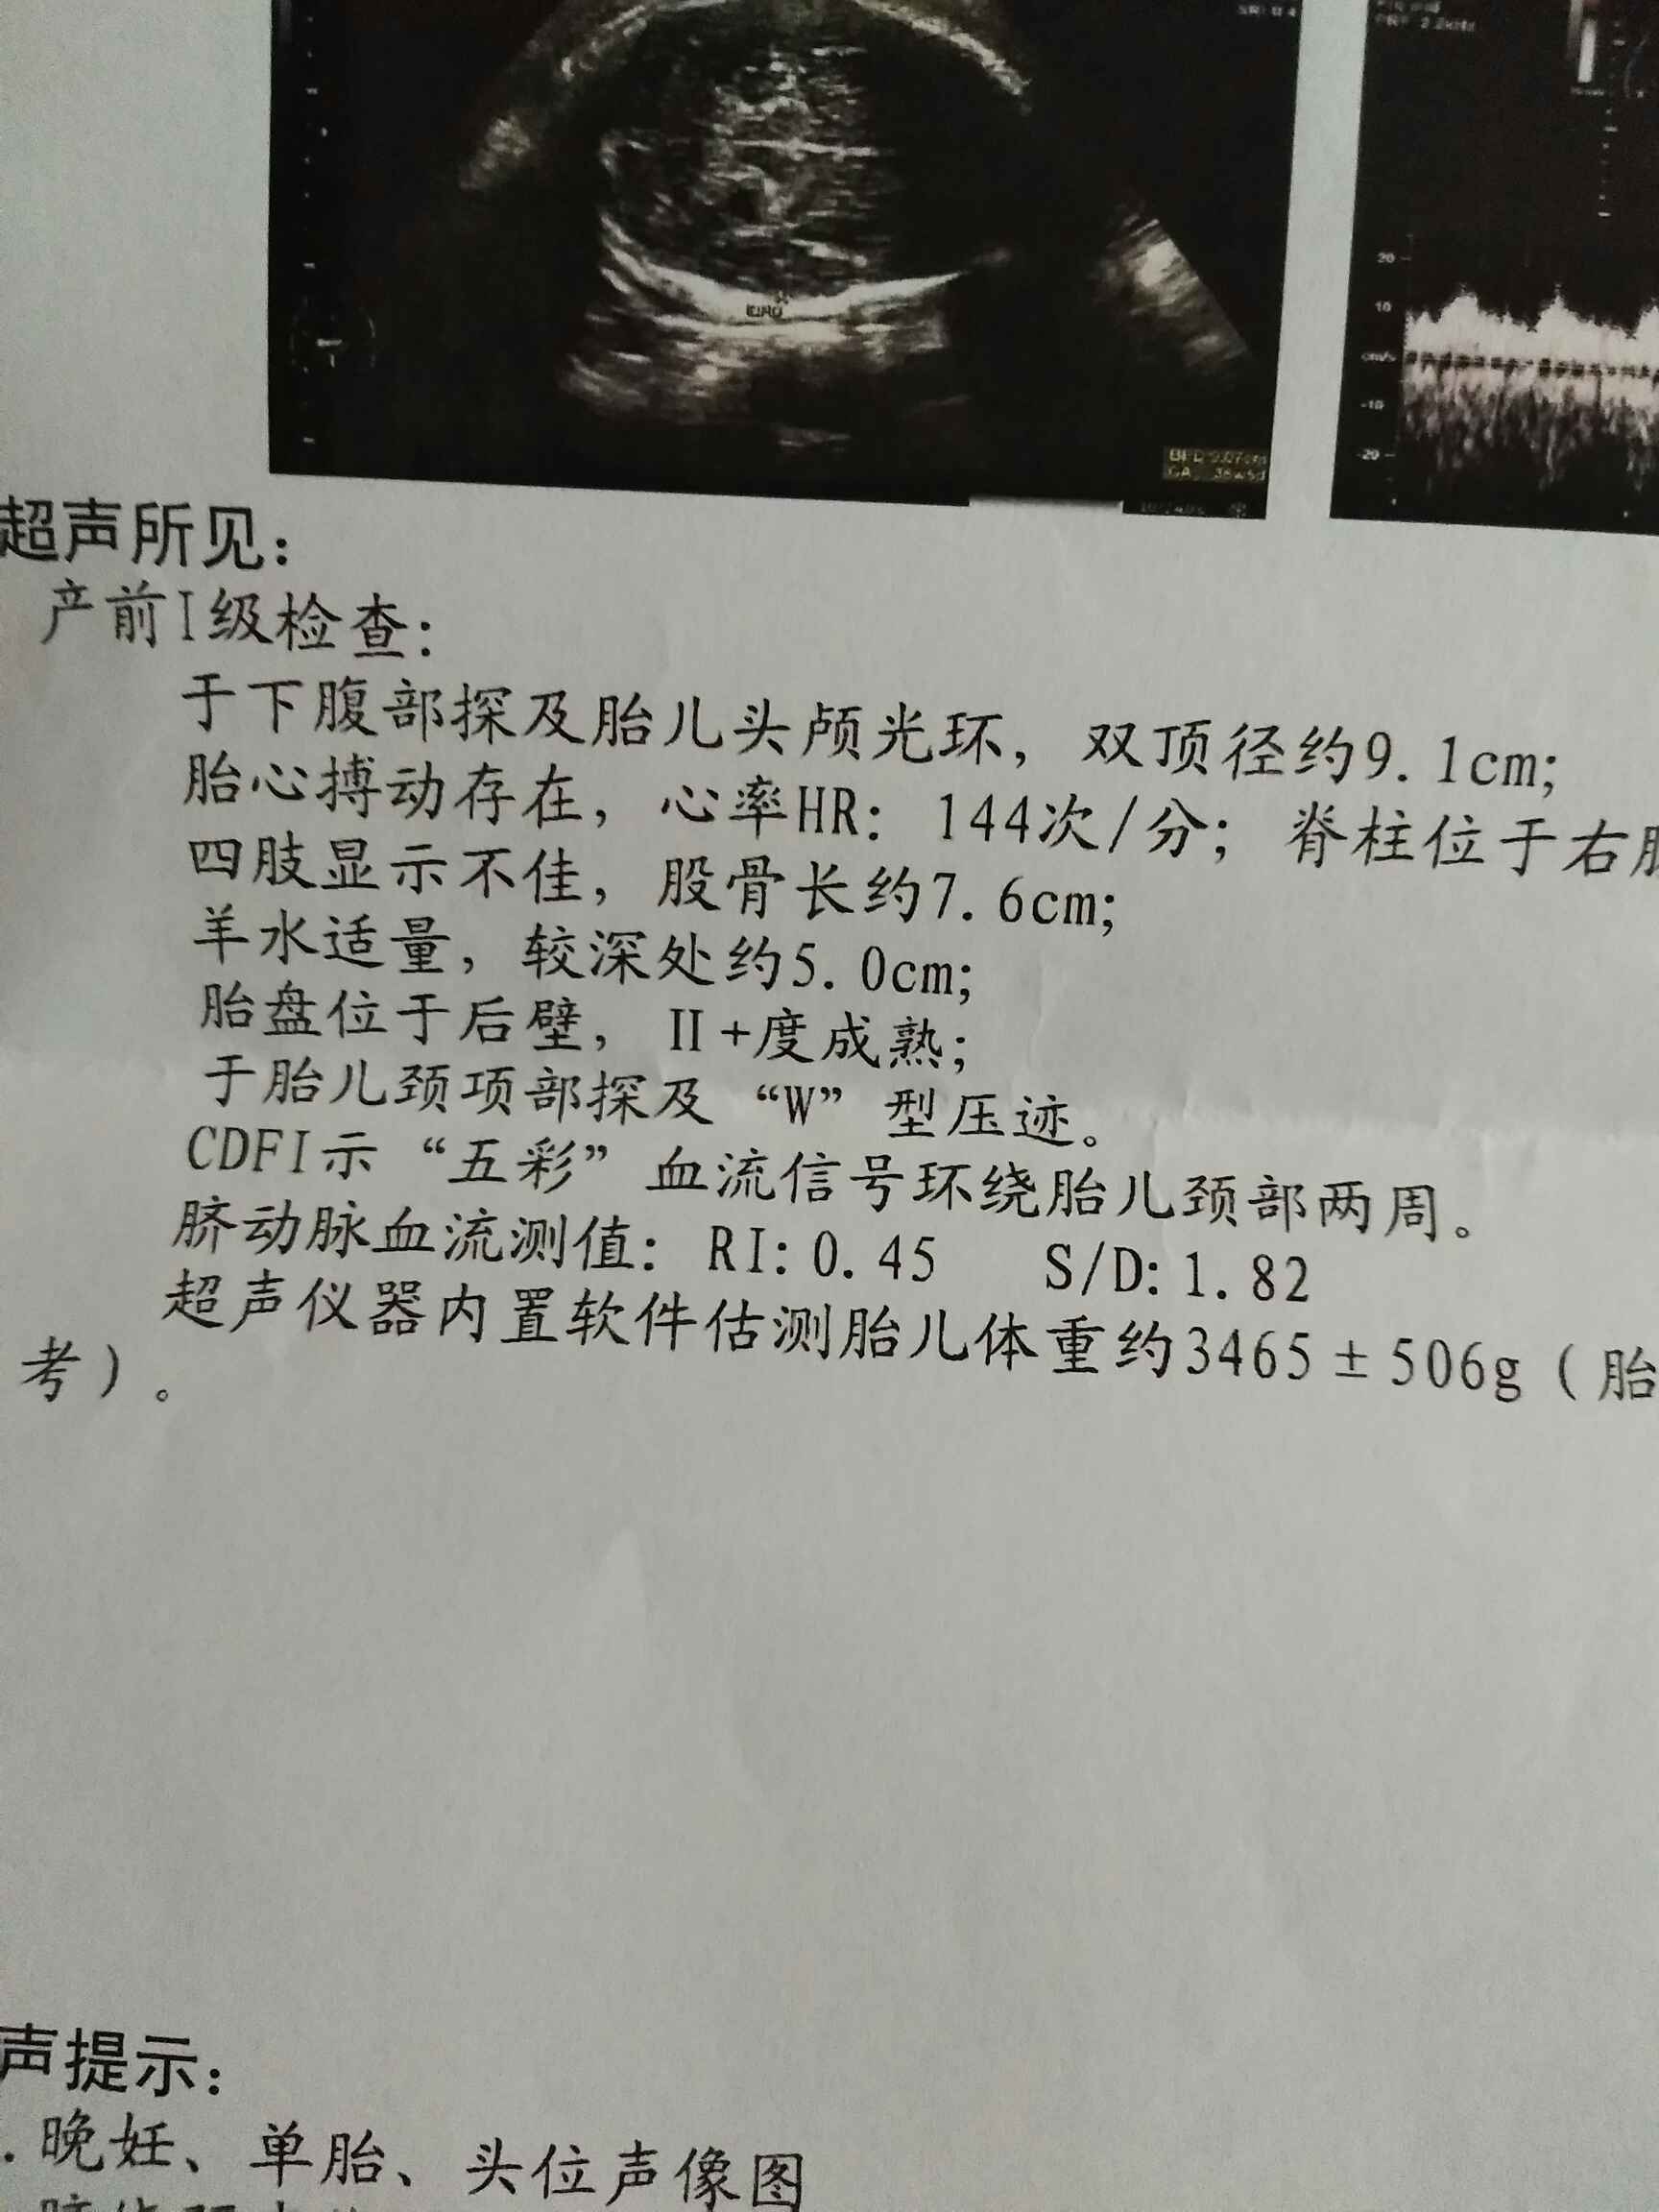 2.2kHz
20
10
cm/s
-10
-20
BPD 9.07cm
GA 36w5d
超声所见：
产前I级检查：
于下腹部探及胎儿头颅光环，双顶径约9.1cm;
胎心搏动存在，心率HR：144次/分；脊柱位于右
四肢显示不佳，股骨长约7.6cm;
羊水适量，较深处约5.0cm;
胎盘位于后壁，II+度成熟;
于胎儿颈项部探及“W”型压迹。
CDFI示“五彩”血流信号环绕胎儿颈部两周。
脐动脉血流测值：RI:0.45 S/D:1.82
超声仪器内置软件估测胎儿体重约3465±506g（胎
考）。
声提示：
.晚妊、单胎、头位声像图